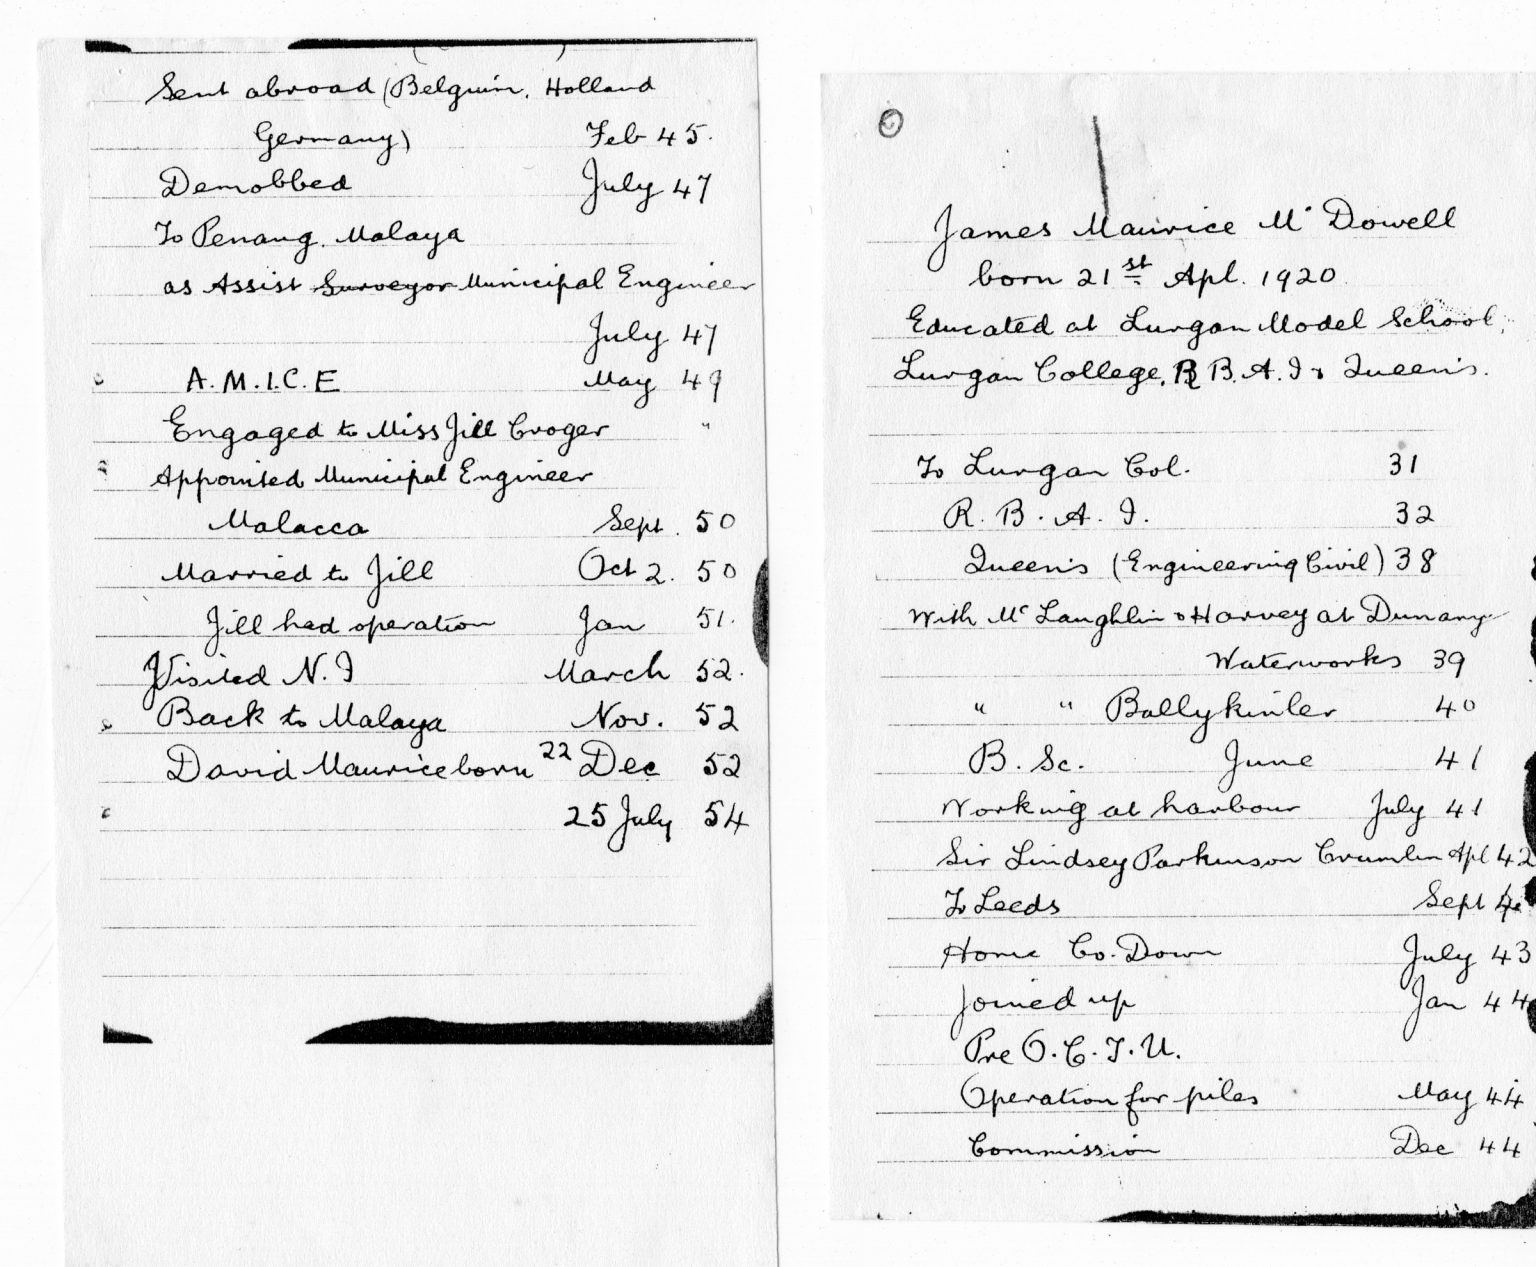 James Maurice Mc Dowell
born 21st Apl. 1920
Educated at Lurgan Model School,
Lurgan College, R B. A. I & Queen's.
To Lurgan Col. 31
R. B. A. I. 32
Queen's (Engineering Civil) 38
With Mc Laughlin & Harvey at Dunany
Waterworks 39
" " Ballykinler 40
B. Sc. June 41
Working at harbour July 41
Sir Lindsey Parkinson Crumlin Apl 42
To Leeds Sept
Home Co. Down July 43
Joined up Jan 44
Pre O.C.T.U.
Operation for piles May 44
Commission Dec 44
Sent abroad (Belguim, Holland
Germany) Feb 45.
Demobbed July 47
To Penang, Malaya
as Assist Surveyor Municipal Engineer
July 47
A.M.I.C.E May 49
Engaged to Miss Jill Croger "
Appointed Municipal Engineer
Malacca Sept. 50
Married to Jill Oct 2. 50
Jill had operation Jan 51.
Visited N.I March 52.
Back to Malaya Nov. 52
David Maurice born 22 Dec 52
25 July 54